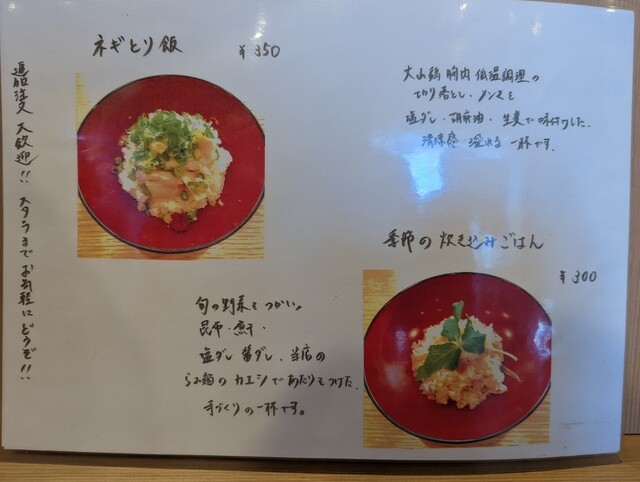 ネギとり飯
¥350
大山鶏 胸肉 低温調理の
切り落とし、メンマを
塩ダレ・胡麻油・生姜で味付けした、
清涼感 溢れる 一杯です。
季節の炊き込みごはん
¥300
旬の野菜をつかい、
昆布・煮干・
塩ダレ 醤ダレ、当店の
らぁ麺の カエシで あたりをつけた、
手づくりの一杯です。
追加注文 大歓迎!! スタッフまでお気軽にどうぞ!!